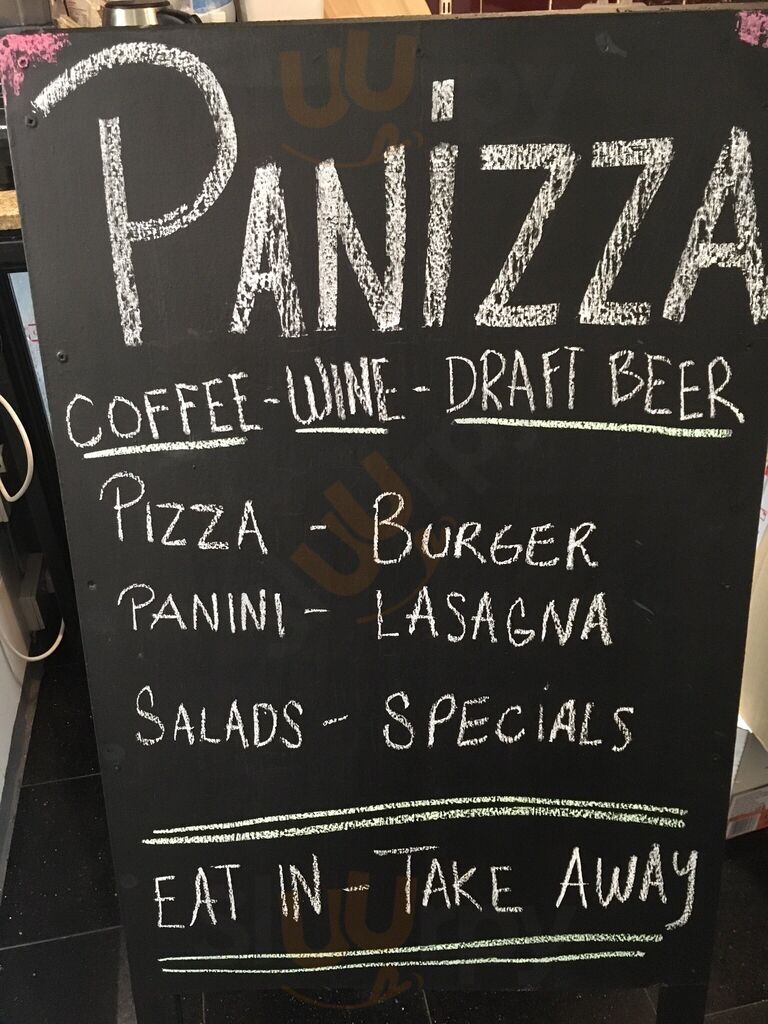 PANiZZA
COFFEE - WINE - DRAFT BEER
PIZZA - BURGER
PANINI - LASAGNA
SALADS - SPECiALS
EAT IN - TAKE AWAY